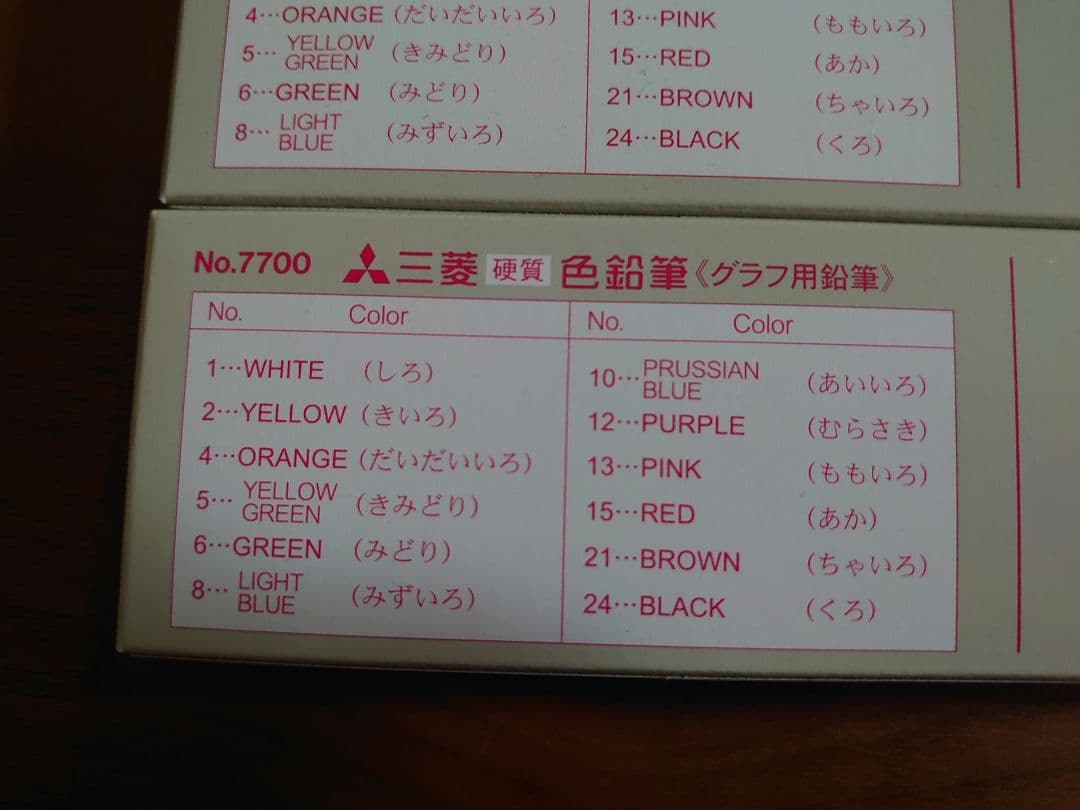 4…ORANGE (だいだいいろ)
5… YELLOW GREEN (きみどり)
6…GREEN (みどり)
8… LIGHT BLUE (みずいろ)
13…PINK (ももいろ)
15…RED (あか)
21…BROWN (ちゃいろ)
24…BLACK (くろ)
No.7700 三菱 硬質 色鉛筆《グラフ用鉛筆》
No. Color
1…WHITE (しろ)
2…YELLOW (きいろ)
4…ORANGE (だいだいいろ)
5… YELLOW GREEN (きみどり)
6…GREEN (みどり)
8… LIGHT BLUE (みずいろ)
No. Color
10… PRUSSIAN BLUE (あいいろ)
12…PURPLE (むらさき)
13…PINK (ももいろ)
15…RED (あか)
21…BROWN (ちゃいろ)
24…BLACK (くろ)